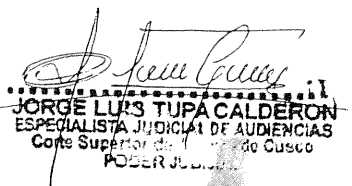 JORGE LUIS TUPA CALDERON
ESPECIALISTA JUDICIAL DE AUDIENCIAS
Corte Superior de Cusco
PODER